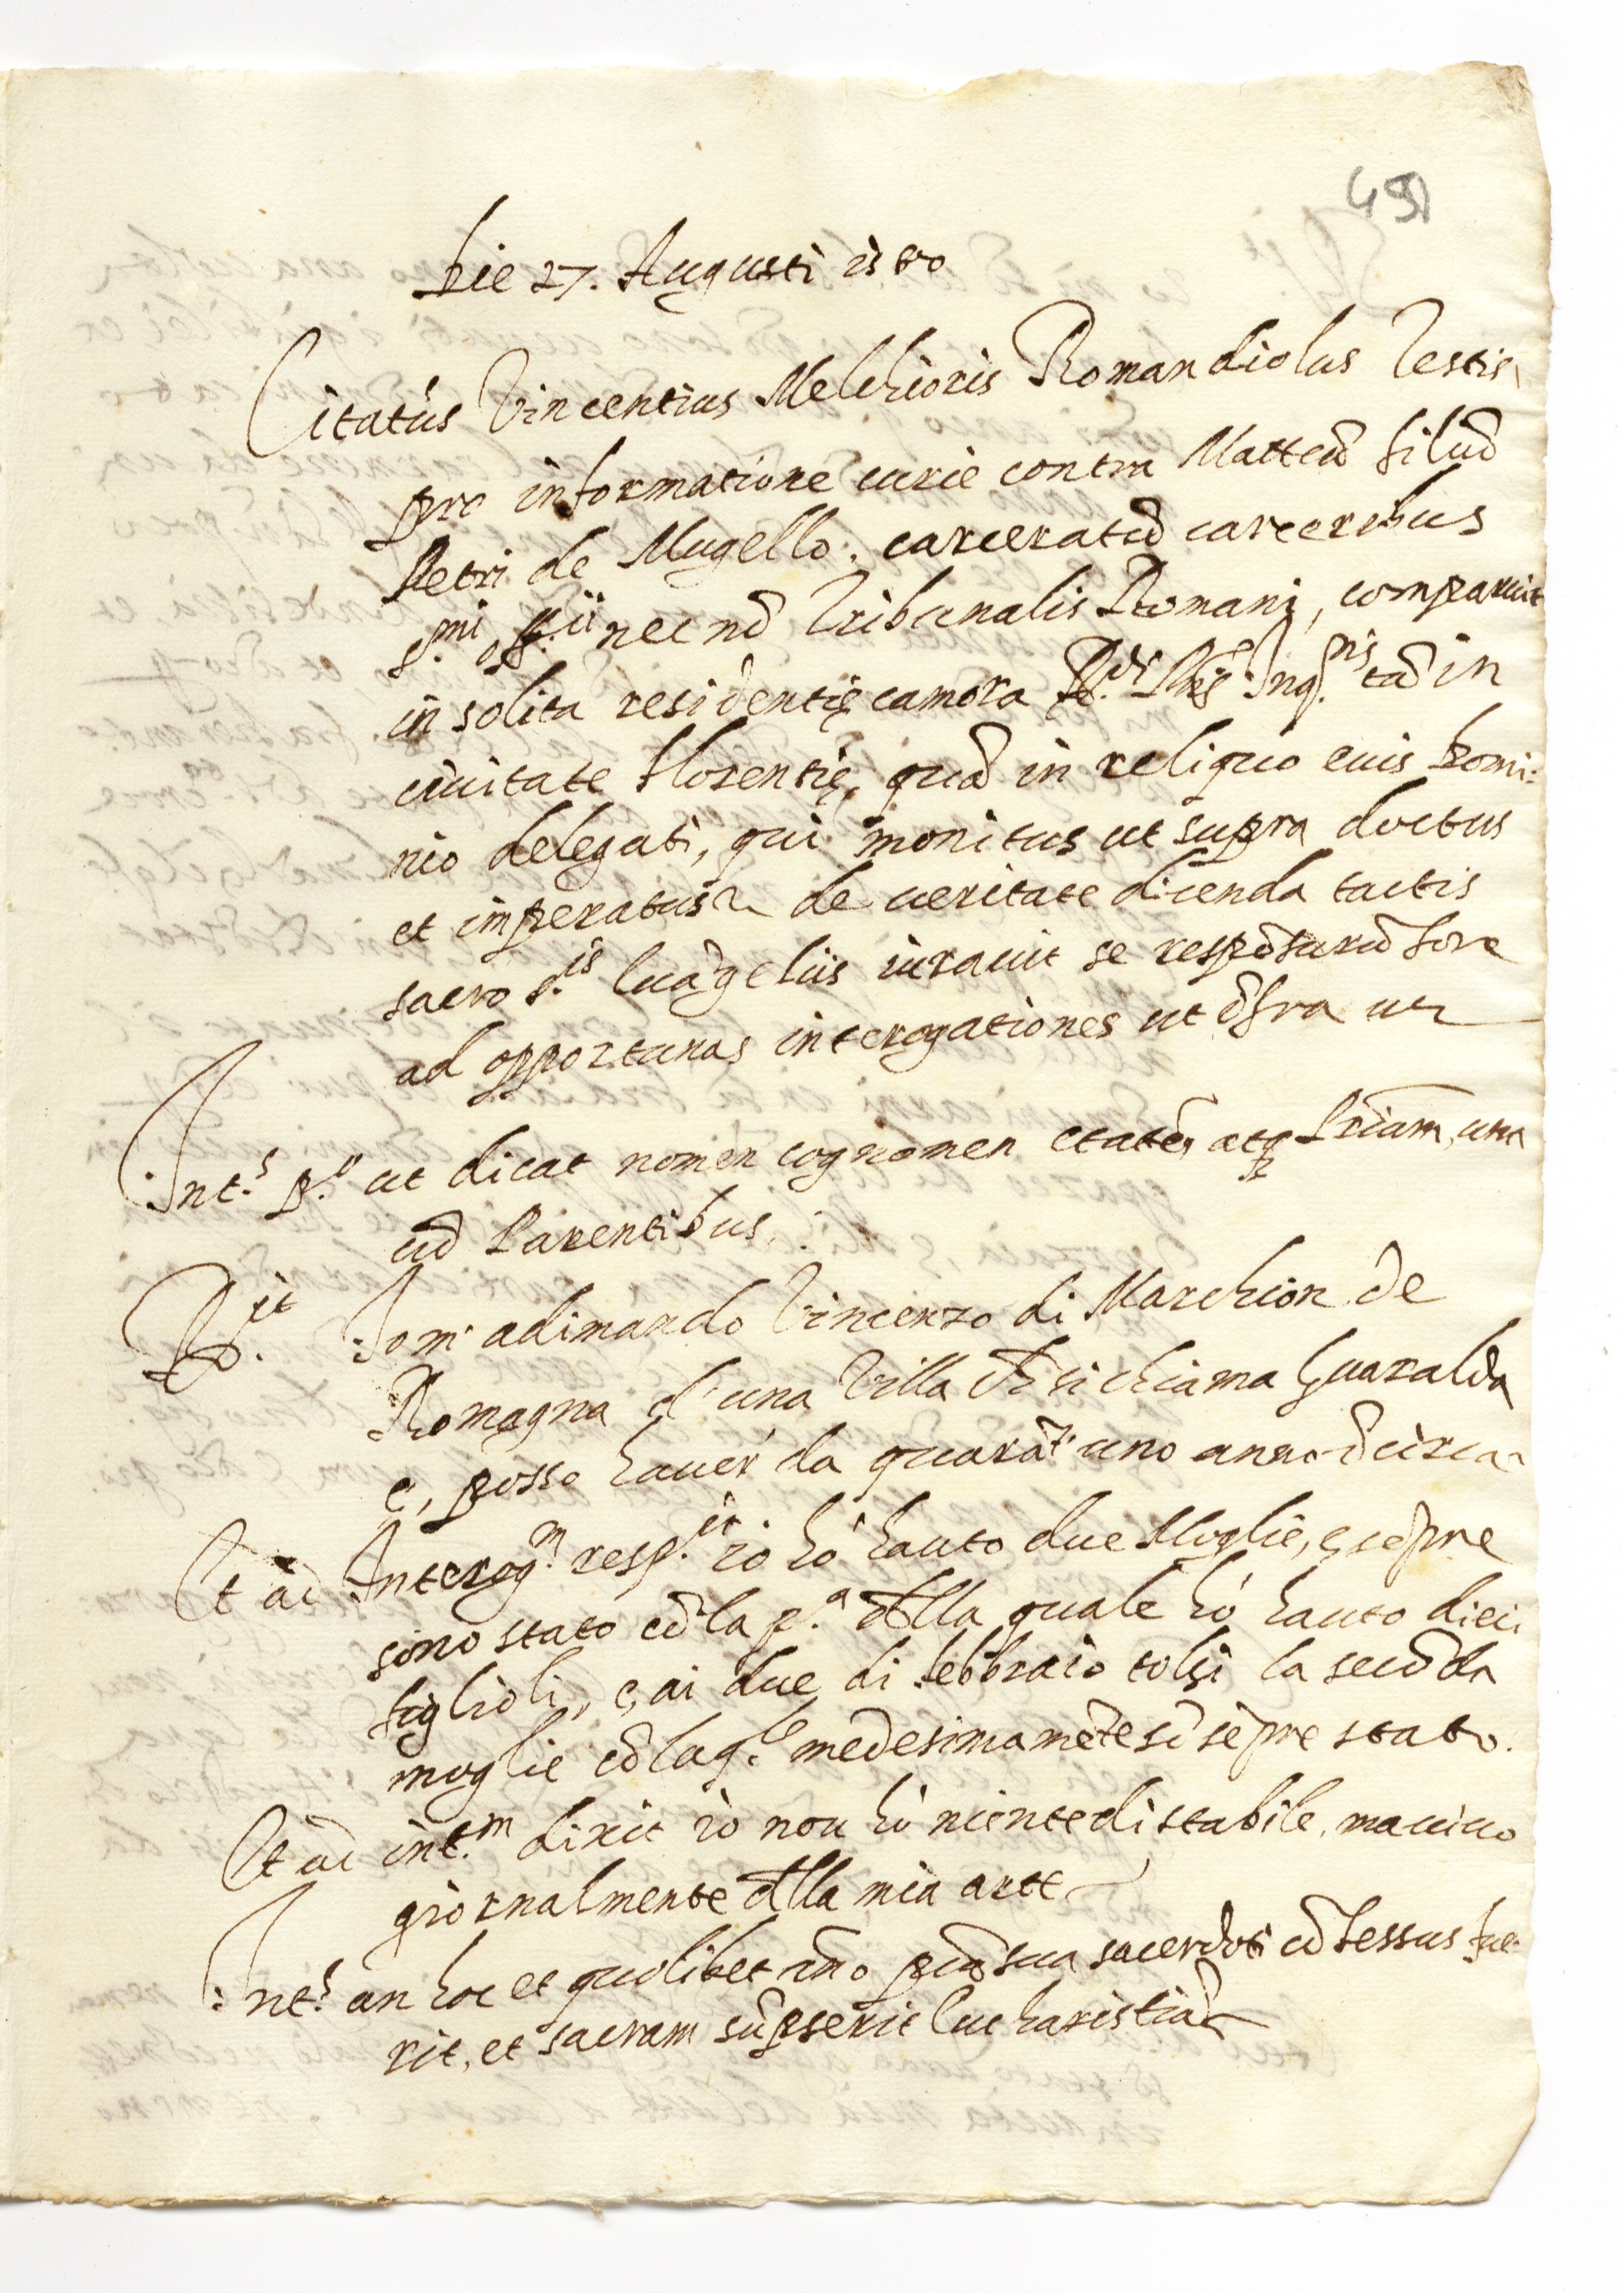 491
Die 27. Augusti 1580
Citatus Vincentius Melchioris Romandiolus Testis
pro informatione curie contra Matteū filiū
Petri de Mugello. carceratū carceribus
s.mi off.ii nec nō Tribunalis Romani, comparuit
in solita residentię camera R.di P̄ris Inq.ris tā in
ciuitate Florentię, quā in reliquo euis Domi:
nio delegati, qui monitus ut supra doctus
et imperatus de ueritate dicenda tactis
sacro s.is Euāgeliis iurauit se respōsurū fore
ad opportunas interogationes ut īfra uz
Int.s p.o ut dicat nomen cognomen etatē atq Pr̄iam, una
cū Parentibus.
R.it Io m' adimando Vincenzo di Marchion de
Romagna d'una Villa ch̄ si chiama Gualralda
e, posso hauer da quarāt'uno anno ī circa
Et ad Interog.m resp.it io hò hauto due Moglie, e sēpre
sono stato cō la p.a d̄lla quale hò hauto dieci
figlioli, e, ai due di febbraio tolsi la secōda
moglie cō la q.le medesimamēte sō sēpre stato.
Et ad int.m dixit io non hò niente di stabile, ma uiuo
giornalmente d̄lla mia arte
Int.s an hoc et quolibet an̄o p̄cā sua sacerdoti cōfessus fue:
rit, et sacram sūpserit Eucharistiā